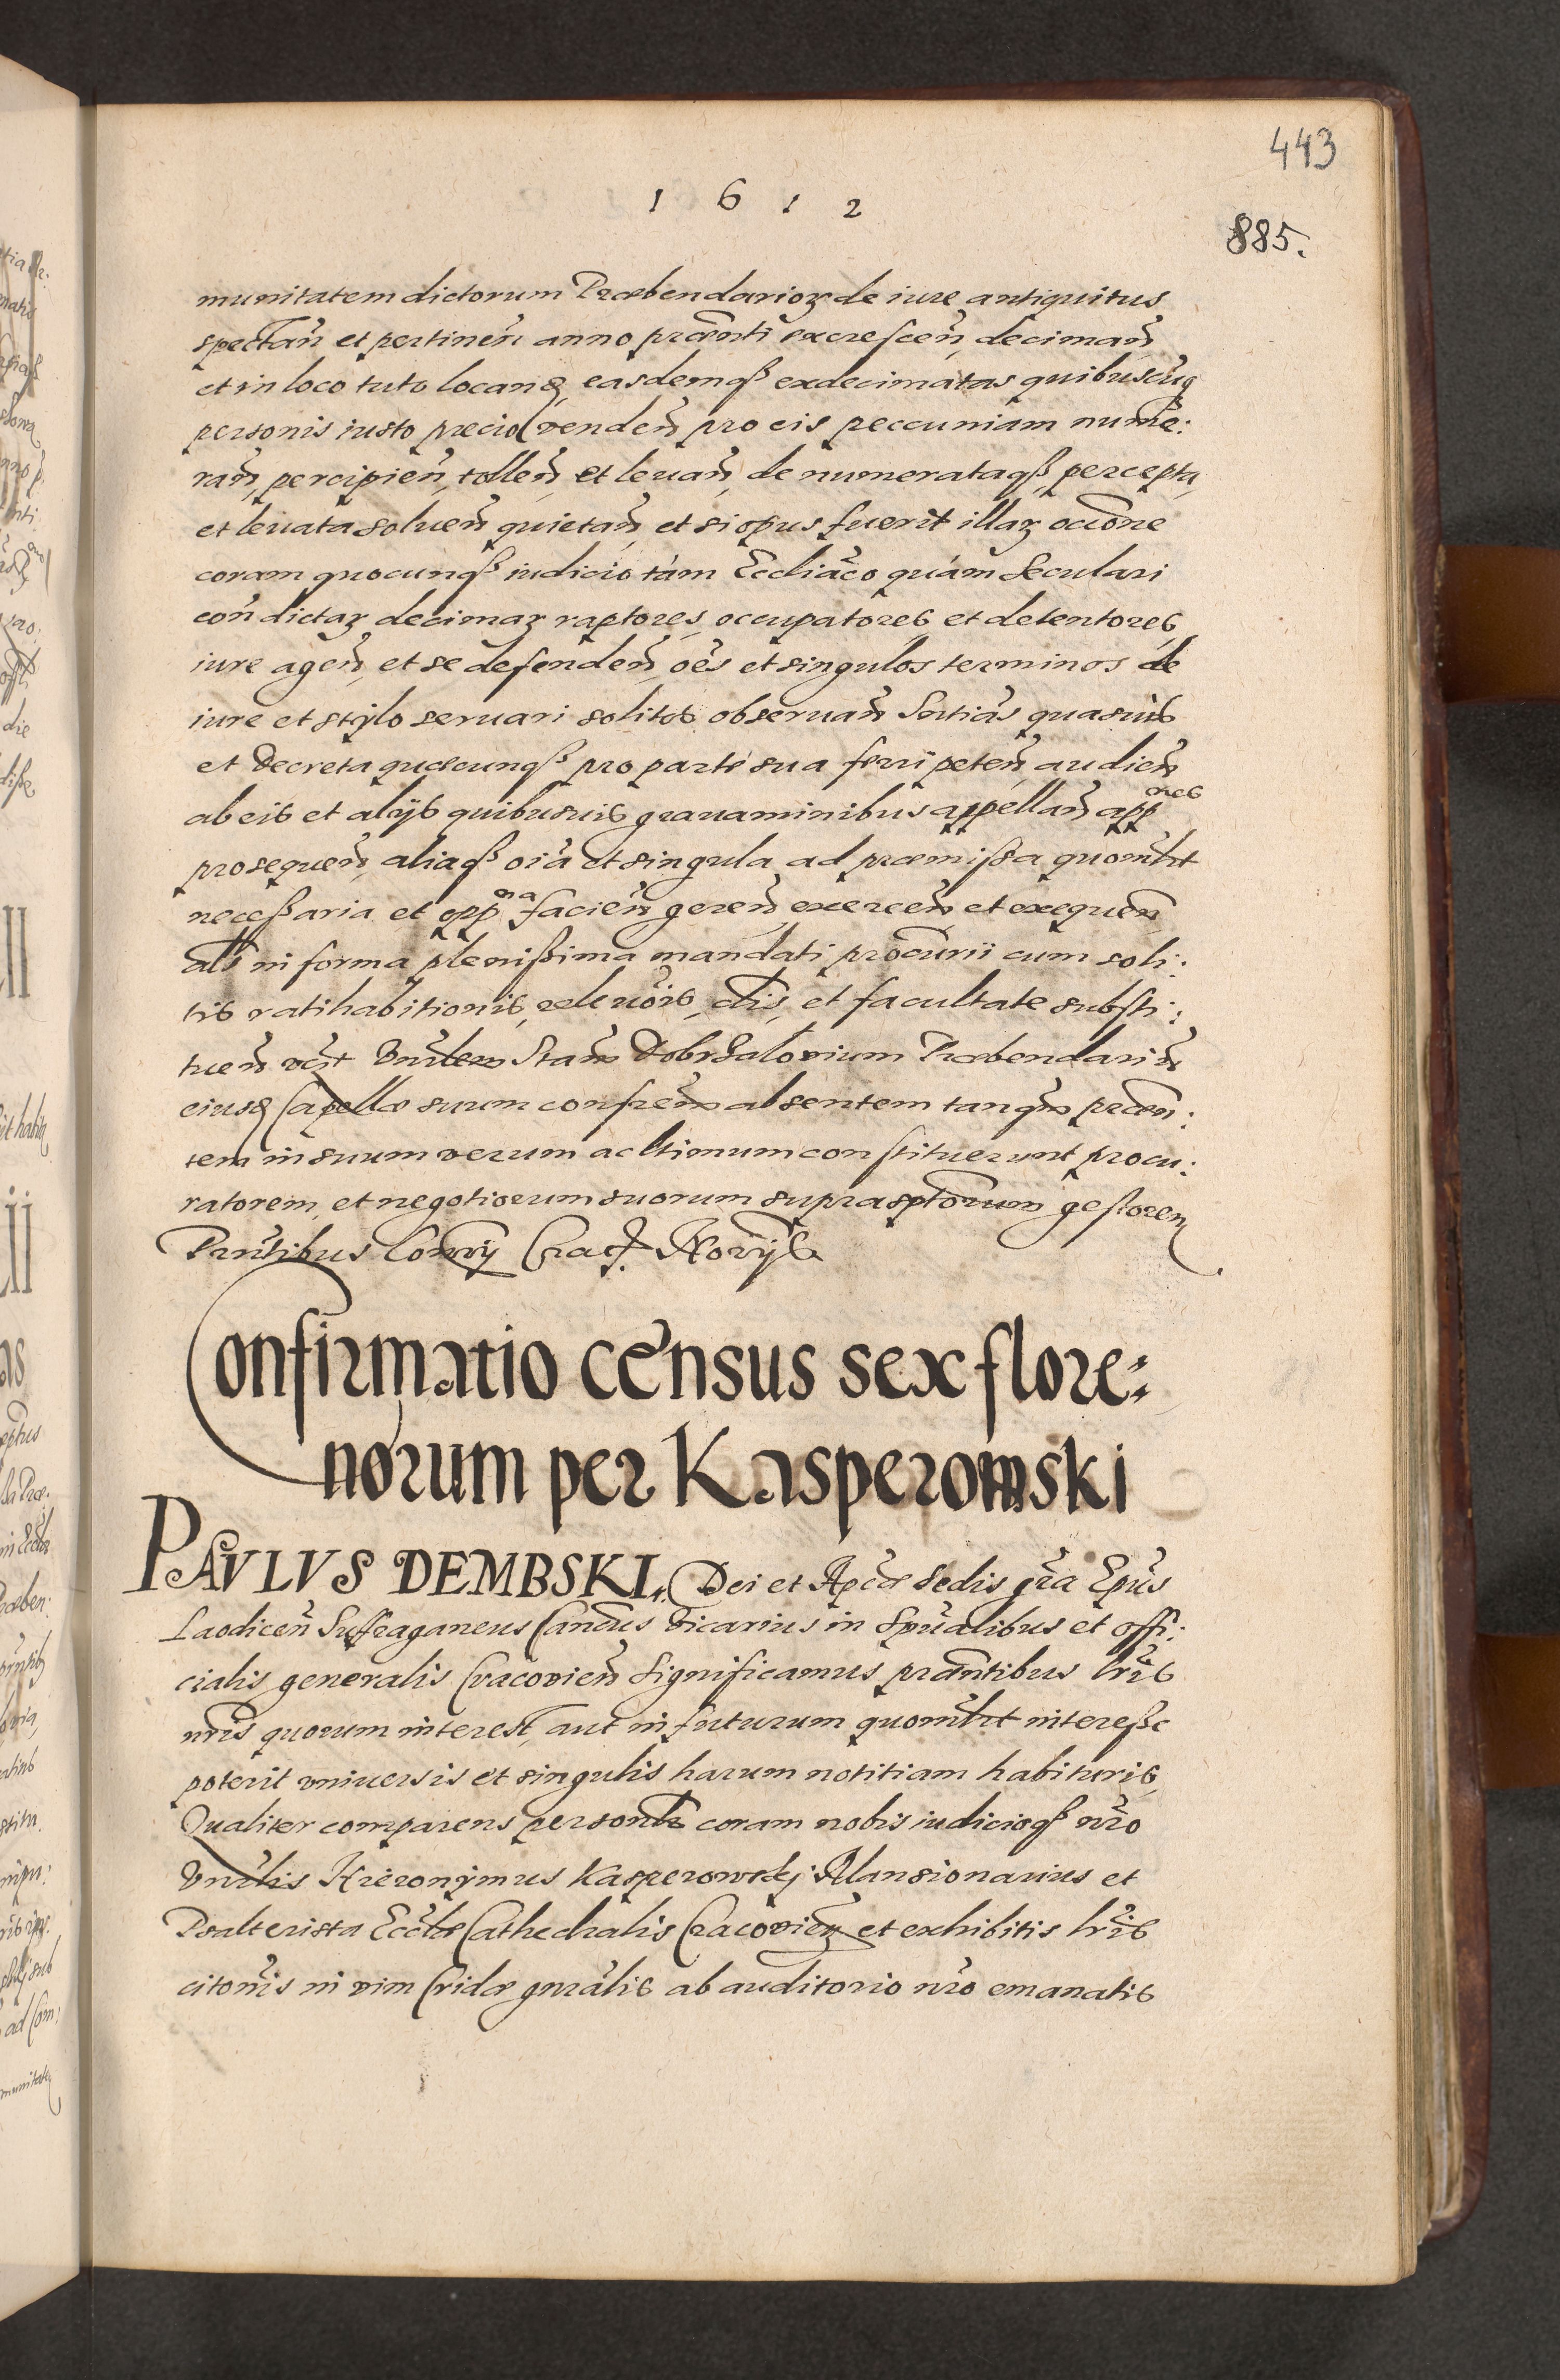 443
1 6 1 2
885.
munitatem dictorum Præbendarioꝝ de iure antiquitus
spectañ et pertineñ anno præñti excresceñ, decimañ
et in loco tuto locanđ, easdemqꝫ exdecimatas quibuscũqꝫ
personis iusto precio vendeñ pro eis peccuniam nume:
rañ, percipieñ, tolleñ, et leuañ, de numerataqꝫ, percepta,
et leuata solueñ quietañ, et si opus fuerit illaꝝ occõne
coram quocunqꝫ iudicio tàm Eccliãco quàm Seculari
coñ dictaꝝ decimaꝝ raptores, occupatores, et detentores,
iure ageñ, et se defendeñ, oẽs et singulos terminos de
iure et stylo seruari solitos obseruañ Sñtias quasuis
et Decreta quæcunqꝫ pro parte sua ferri peteñ, audieñ
ab eis et alijs quibusuis grauaminibus appellañ appᵒⁿᵉˢ
prosequeñ, aliaqꝫ oĩa et singula ad præmißa quomłt
neceßaria et oppᵒⁿᵃ facieñ gereñ, exerceñ, et exequeñ
als in forma plenißima mandati procurii cum soli:
tis ratihabitionis, releuõis, clis, et facultate substi:
tueñ vẽt Vñlem Stañ Dobrsalovium Præbendariũ
eiusđ Capellæ suum confrem absentem tanqm præsen:
tem in suum verum ac ltimum constituerunt procu:
ratorem, et negotiorum suorum suprasptorum gestorem
Præntibus Conrij Crac. Norijs
Confirmatio census sex flore:
norum per Kasperowski
PAVLVS DEMBSKI. Dei et Apcæ Sedis gra Epus
Laodiceñ Suffraganeus Canõus Vicarius in Spũalibus et offi:
cialis generalis Cracovieñ Significamus præntibus lris
nris quorum interest, aut in futurum quomłt intereße
poterit vniuersis et singulis harum notitiam habituris,
Qualiter comparens personlr coram nobis iudicioqꝫ nro
Vñlis Hieronymus Kasperowskj Mansionarius et
Psalterista Eccłæ Cathedralis Cracovieñ et exhibitis lris
citonis in vim Cridæ gnralis ab auditorio nro emanatis